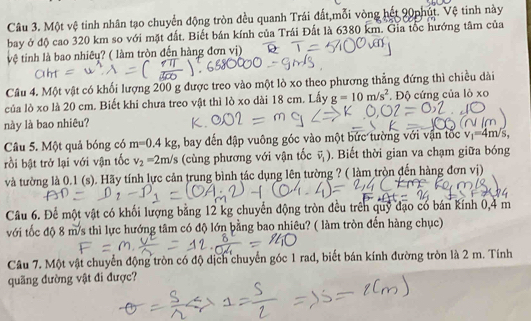 Câu 3. Một vệ tinh nhân tạo chuyển động tròn đều quanh Trái đất, mỗi vòng hết 90phút. Vệ tinh này
bay ở độ cao 320 km so với mặt đất. Biết bán kính của Trái Đất là 6380 km. Gia tốc hướng tâm của
vệ tinh là bao nhiêu? ( làm tròn đến hàng đơn vị)
Câu 4. Một vật có khối lượng 200 g được treo vào một lò xo theo phương thẳng đứng thì chiều dài
của lò xo là 20 cm. Biết khi chưa treo vật thì lò xo dài 18 cm. Lấy g = 10 m/s². Độ cứng của lò xo
này là bao nhiêu?
K. 0,02 = mg <=> K. 0,02 = 0,2 . 10
K = 100 (N/m)
Câu 5. Một quả bóng có m=0.4 kg, bay đến đập vuông góc vào một bức tường với vận tốc v₁=4m/s,
rồi bật trở lại với vận tốc v₂ =2m/s (cùng phương với vận tốc v⃗₁ ). Biết thời gian va chạm giữa bóng
và tường là 0.1 (s). Hãy tính lực cản trung bình tác dụng lên tường ? ( làm tròn đến hàng đơn vị)
Câu 6. Để một vật có khối lượng bằng 12 kg chuyển động tròn đều trên quỹ đạo có bán kính 0,4 m
với tốc độ 8 m/s thì lực hướng tâm có độ lớn bằng bao nhiêu? ( làm tròn đến hàng chục)
Câu 7. Một vật chuyển động tròn có độ dịch chuyển góc 1 rad, biết bán kính đường tròn là 2 m. Tính
quãng đường vật đi được?